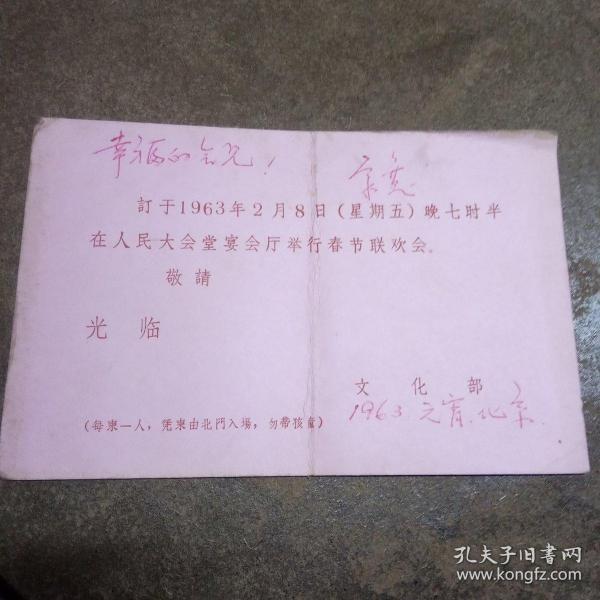 幸福的会见!
訂于1963年2月8日(星期五)晚七时半
在人民大会堂宴会厅举行春节联欢会。
敬請
光 临
文 化 部
1963.元宵.北京.
(每柬一人,凭柬由北門入場,勿帶孩童)
孔夫子旧书网
www.kongfz.com